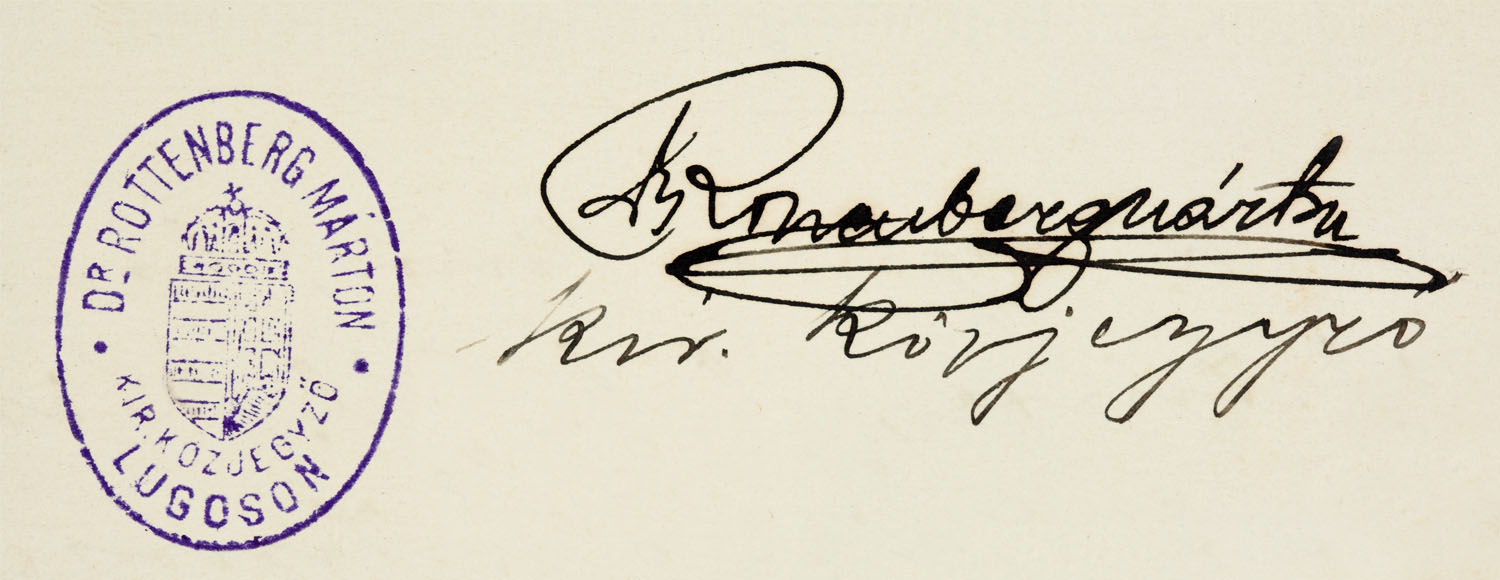 DR ROTTENBERG MÁRTON
KIR. KÖZJEGYZŐ
LUGOSON
Dr Rottenberg Márton
kir. közjegyző